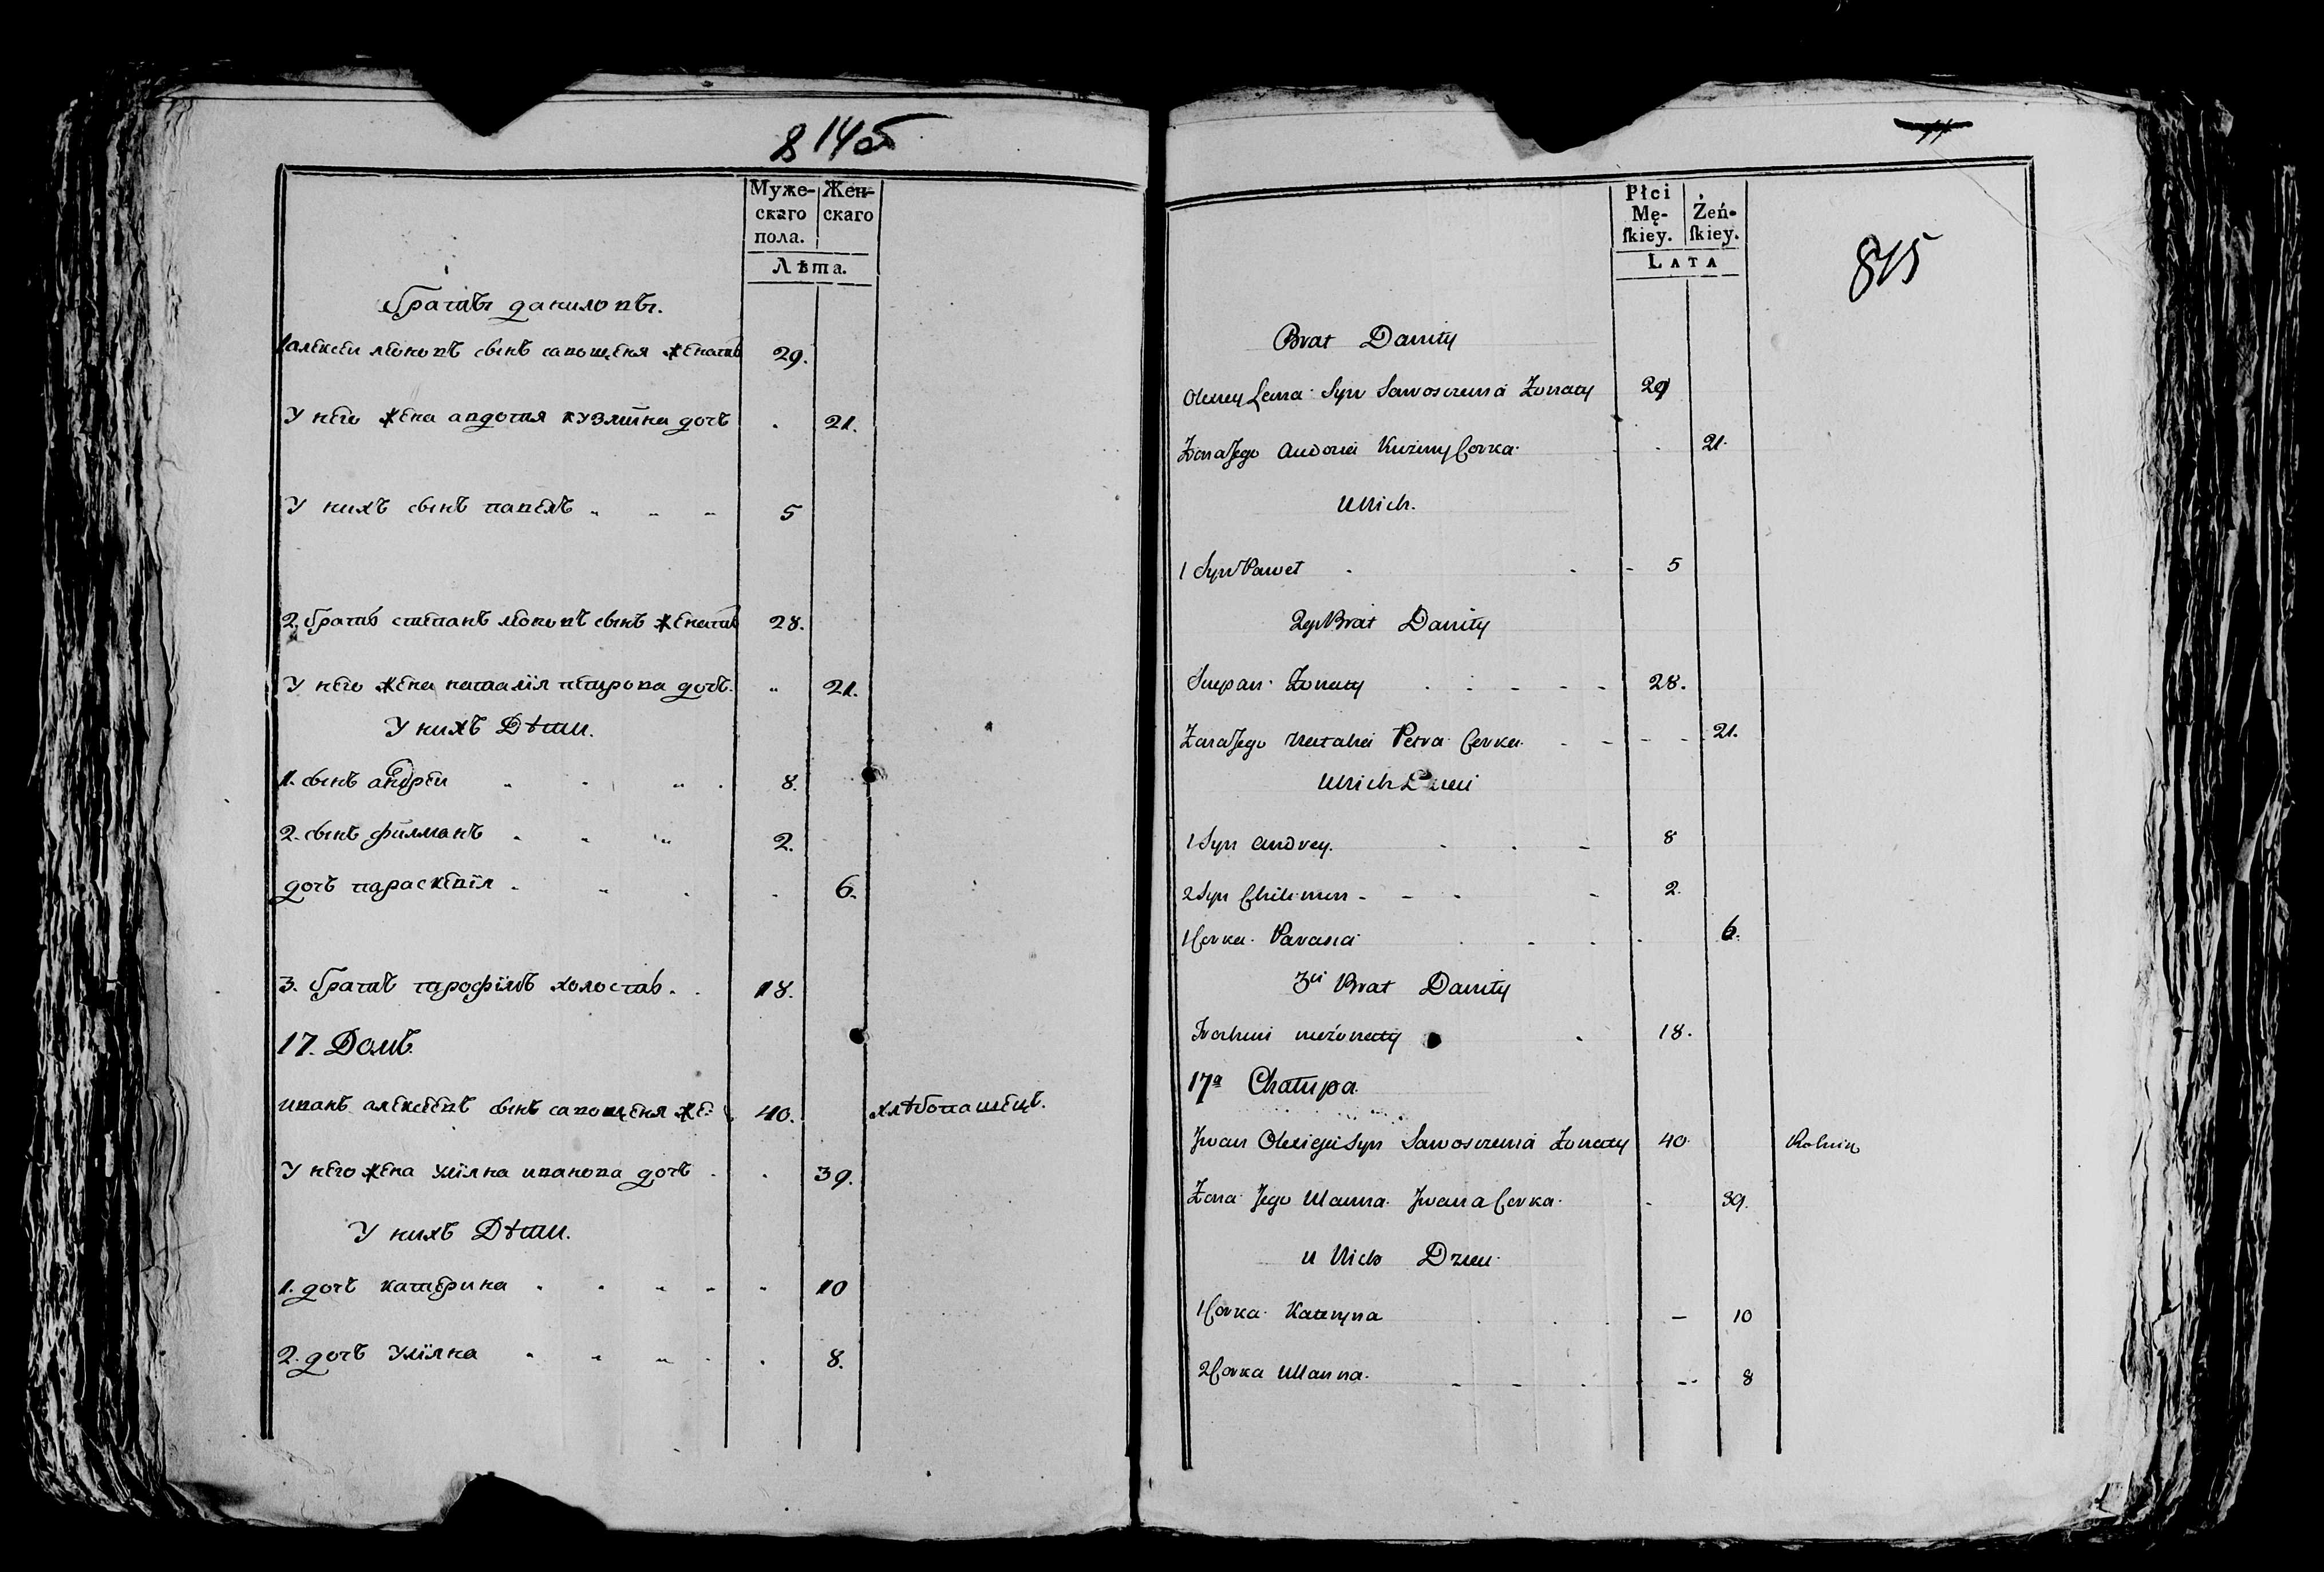 814об
Муже-
скаго
пола.
Жен-
скаго
Лѣта.
братъ даниловъ.
1 алексеи леоновъ сынъ савощеня женатъ 29.
У него жена авдотия кузмина дочъ 21.
У нихъ сынъ павелъ 5
2. братъ степанъ леоновъ сынъ женатъ 28.
У него жена наталія петрова дочъ. 21.
У нихъ Дѣти.
1. сынъ андреи 8.
2. сынъ филимонъ 2.
дочъ параскевія 6.
3. братъ трофімъ холостъ. 18.
17. Домъ.
иванъ алексеевъ сынъ савощеня же: 40. хлѣбопашецъ.
У него жена уліяна иванова дочъ 39.
У нихъ Дѣти.
1. дочъ катерина 10
2. дочъ уліяна 8.
815
Płci
Mę-
ſkiey.
Żeń-
ſkiey.
LATA
Brat Daniły
Olexey Leona Syn Sawoszenia Żonaty 29
Żona Jego Audocia Kuzmy Corka 21.
U Nich.
1 Syn Paweł 5
2gi Brat Daniły
Stepan Żonaty 28.
Żona Jego Natalia Petra Corka. 21.
U Nich Dzieci
1 Syn Andrey. 8
2 Syn Chilimon 2.
1 Corka Parasia 6.
3ci Brat Daniły
Trochim nieżonaty 18.
17a Chałupa.
Jwan Olexieja Syn Sawoszenia Żonaty 40 Rolnik
Żona Jego Ulanna Jwana Corka 39.
U Nich Dzieci
1 Corka Kateryna 10
2 Corka Ulanna. 8